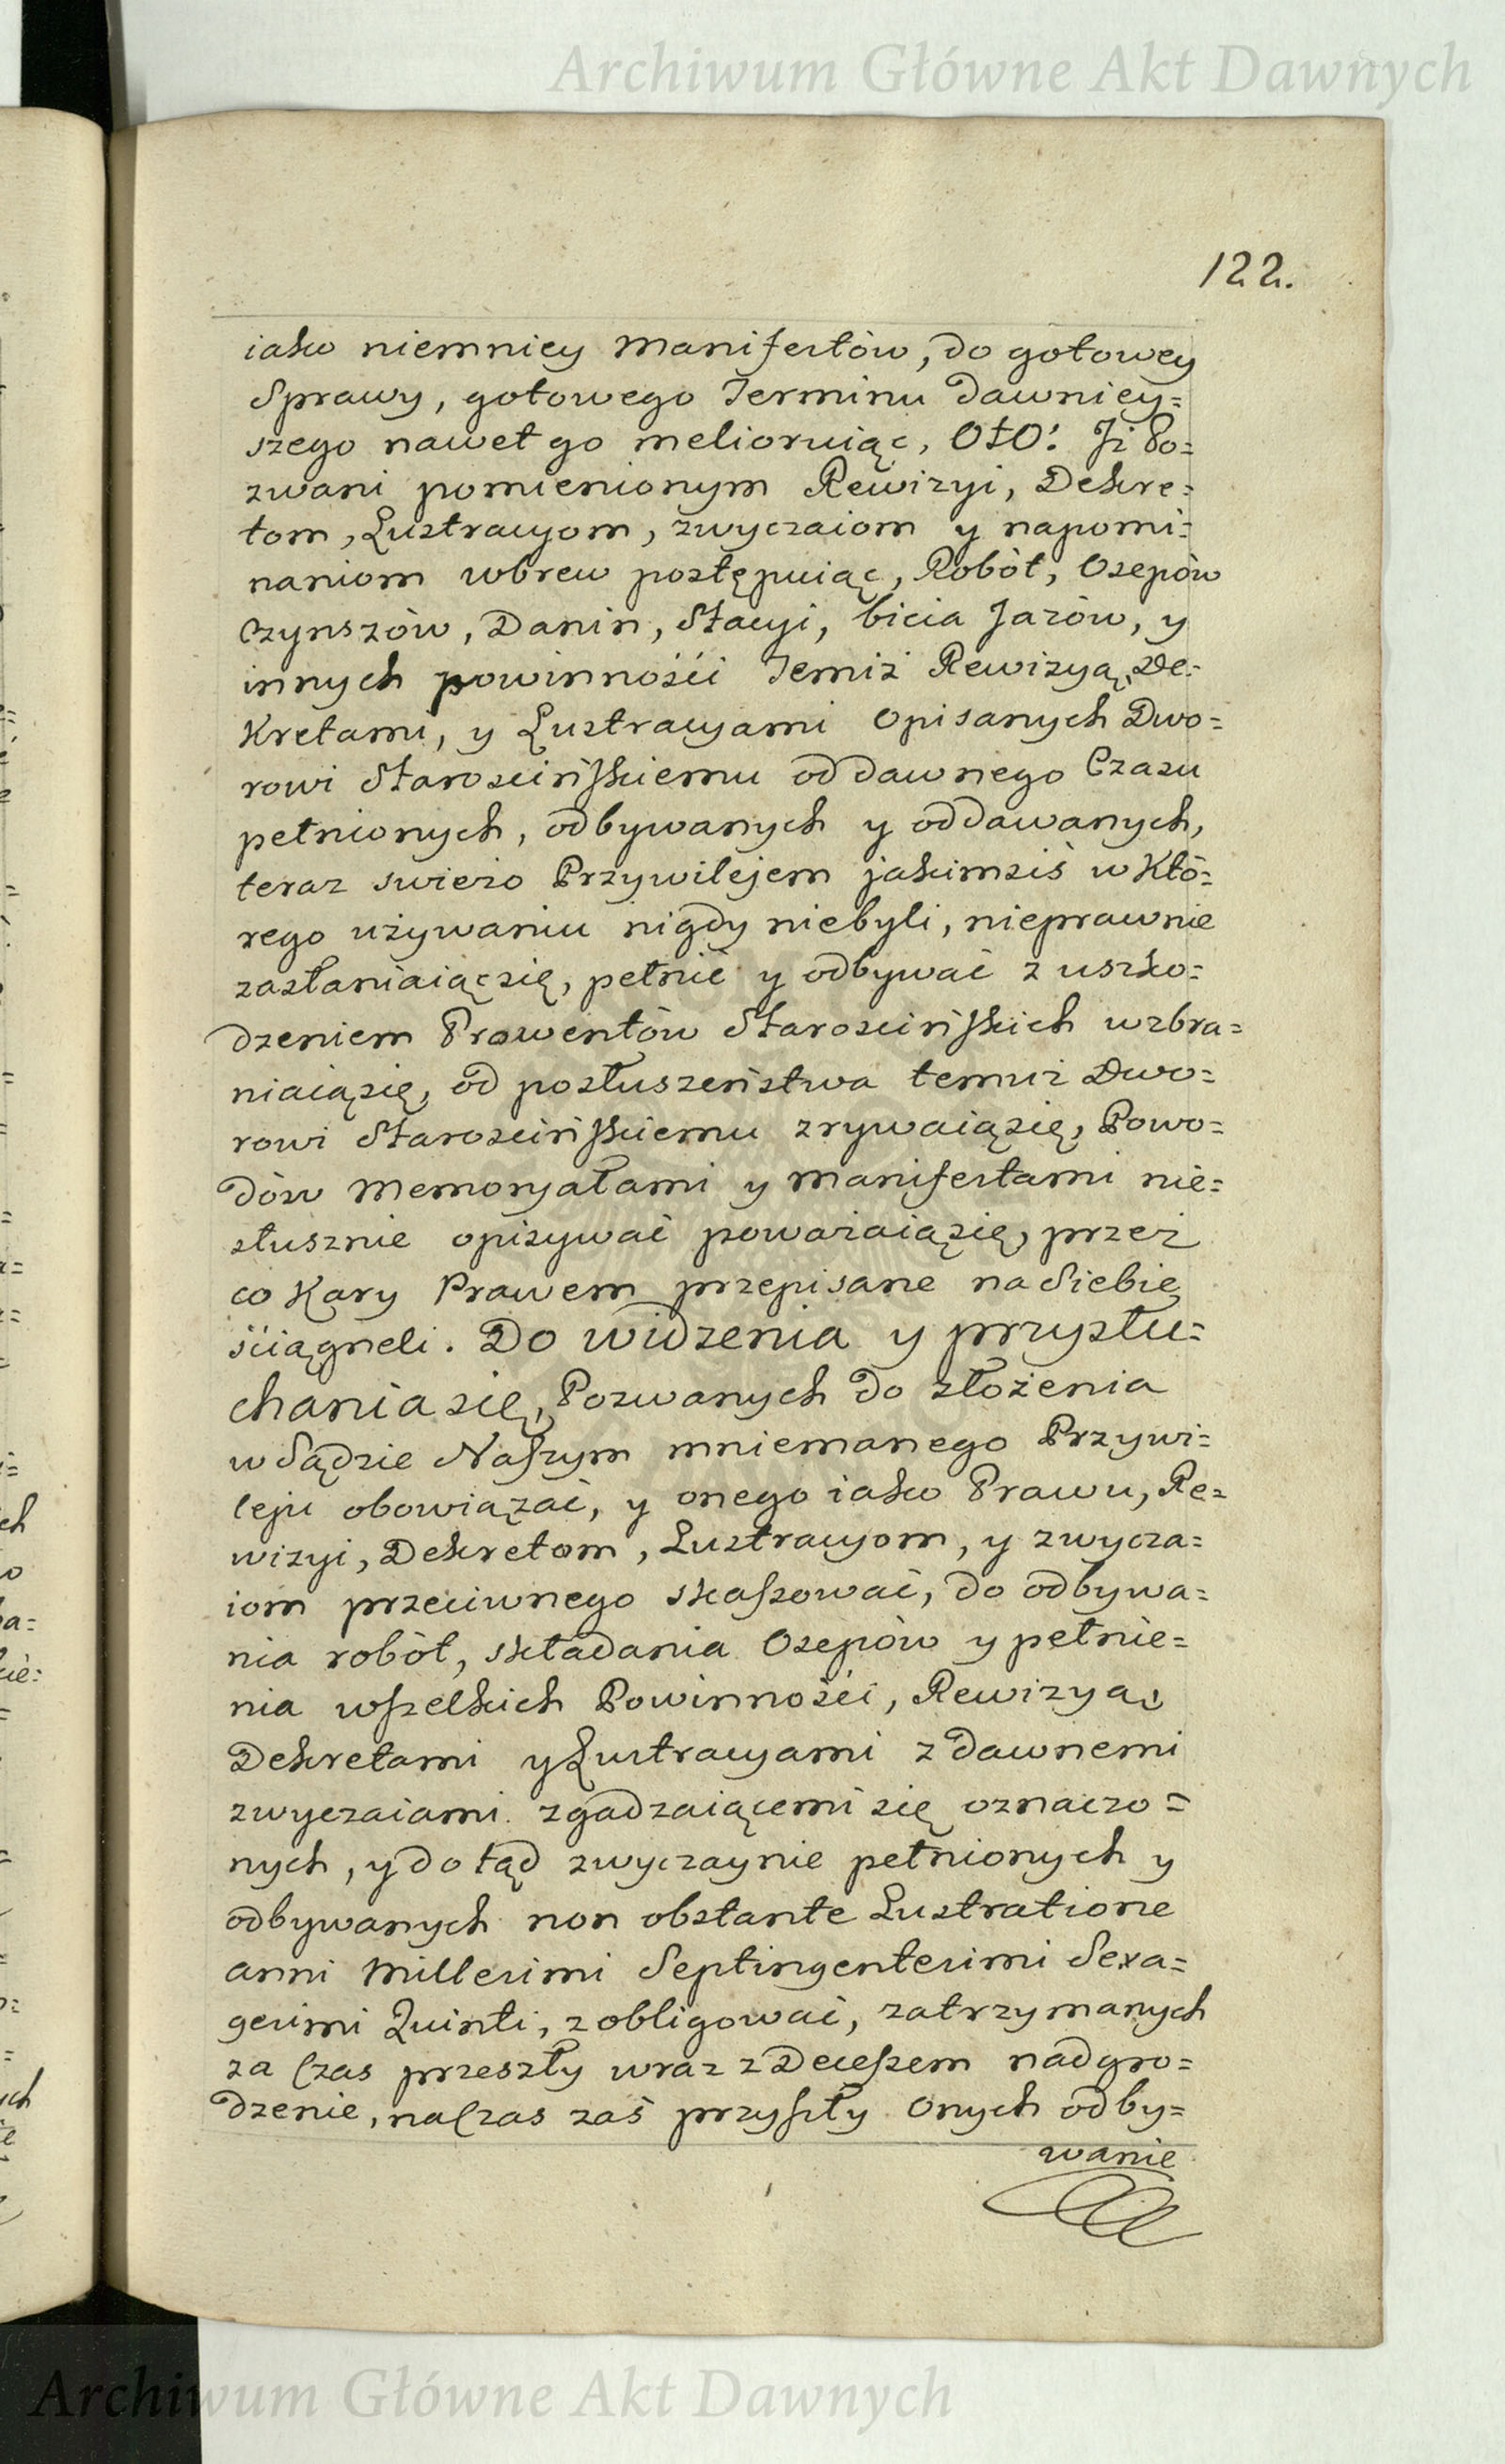 Archiwum Główne Akt Dawnych
122.
iako niemniey Manifestów, do gotowey
Sprawy, gotowego Terminu dawniey=
szego nawet go meliorując, Oto: Iż Po=
zwani pomienionym Rewizyi, Dekre=
tom, Lustracyom, zwyczaiom y napomi=
naniom wbrew postępuiąc, Robót, Osepów
Czynszów, Danin, Stacyi, bicia Jazów, y
innych powinnośći Temiż Rewizyą, De=
kretami, y Lustracyami Opisanych Dwo=
rowi Starościńskiemu od dawnego Czasu
pełnionych, odbywanych y oddawanych,
teraz swieżo Przywilejem jakimsiś w Któ=
rego używaniu nigdy niebyli, nieprawnie
zasłaniaiąc się, pełnić y odbywać z uszko=
dzeniem Prowentów Starościńskich wzbra=
niaią się, od posłuszeństwa temuż Dwo=
rowi Starościńskiemu zrywaią się, Powo=
dów Memoryałami y Manifestami nie=
słusznie opisywać poważaią się, przez
co Kary Prawem przepisane na Siebie
śiągneli. Do widzenia y przysłu=
chania się, Pozwanych do złożenia
w Sądzie Naszym mniemanego Przywi=
leju obowiązać, y onego iako Prawu, Re=
wizyi, Dekretom, Lustracyom, y zwycza=
iom przeciwnego skassować, do odbywa=
nia robót, składania Osepów y pełnie=
nia wszelkich Powinnośći, Rewizyą,
Dekretami y Lustracyami z dawnemi
zwyczaiami zgadzaiącemi się oznaczo=
nych, y dotąd zwyczaynie pełnionych y
odbywanych non obstante Lustratione
anni Millesimi Septingentesimi Sexa=
gesimi Quinti, zobligować, zatrzymanych
za Czas przeszły wraz z Decessem nadgro=
dzenie, na Czas zaś przyszły Onych odby=
wanie
Archiwum Główne Akt Dawnych